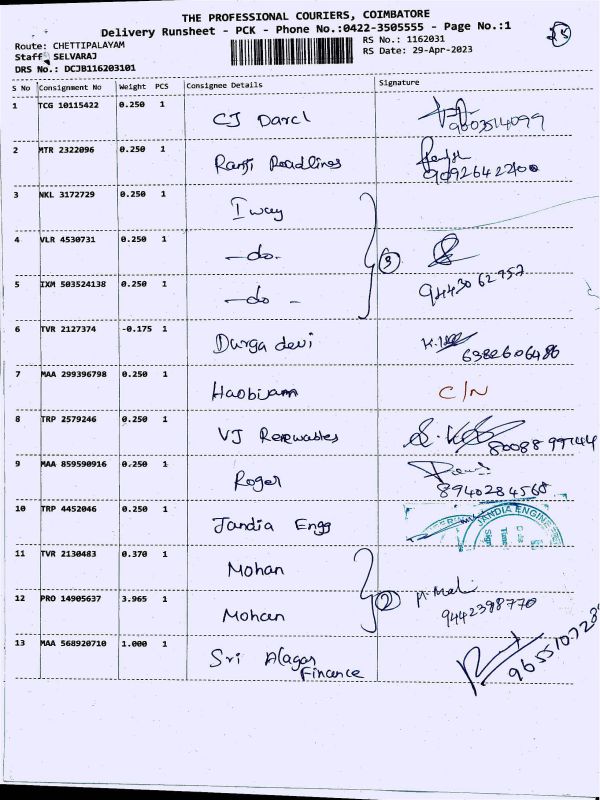 THE PROFESSIONAL COURIERS, COIMBATORE
Delivery Runsheet - PCK - Phone No.:0422-3505555 - Page No.:1
Route: CHETTIPALAYAM
Staff SELVARAJ
DRS No.: DCJB116203101
RS No.: 1162031
RS Date: 29-Apr-2023
S No Consignment No Weight PCS Consignee Details Signature
1 TCG 10115422 0.250 1 CJ Darcl
9003514099
2 MTR 2322096 0.250 1 Ranji Roadlines
9092642200
3 NKL 3172729 0.250 1 I way
4 VLR 4530731 0.250 1 -do- 3
5 IXM 503524138 0.250 1 -do- 9443062952
6 TVR 2127374 -0.175 1 Durga devi
6382606486
7 MAA 299396798 0.250 1 Haobijam C/N
8 TRP 2579246 0.250 1 VJ Renewables
9 MAA 859590916 0.250 1 Roger
8940284568
10 TRP 4452046 0.250 1 Jandia Engg JANDIA ENGINE
11 TVR 2130483 0.370 1 Mohan
12 PRO 14905637 3.965 1 Mohan 2
9442398770
13 MAA 568920710 1.000 1 Sri Alagar
Finance